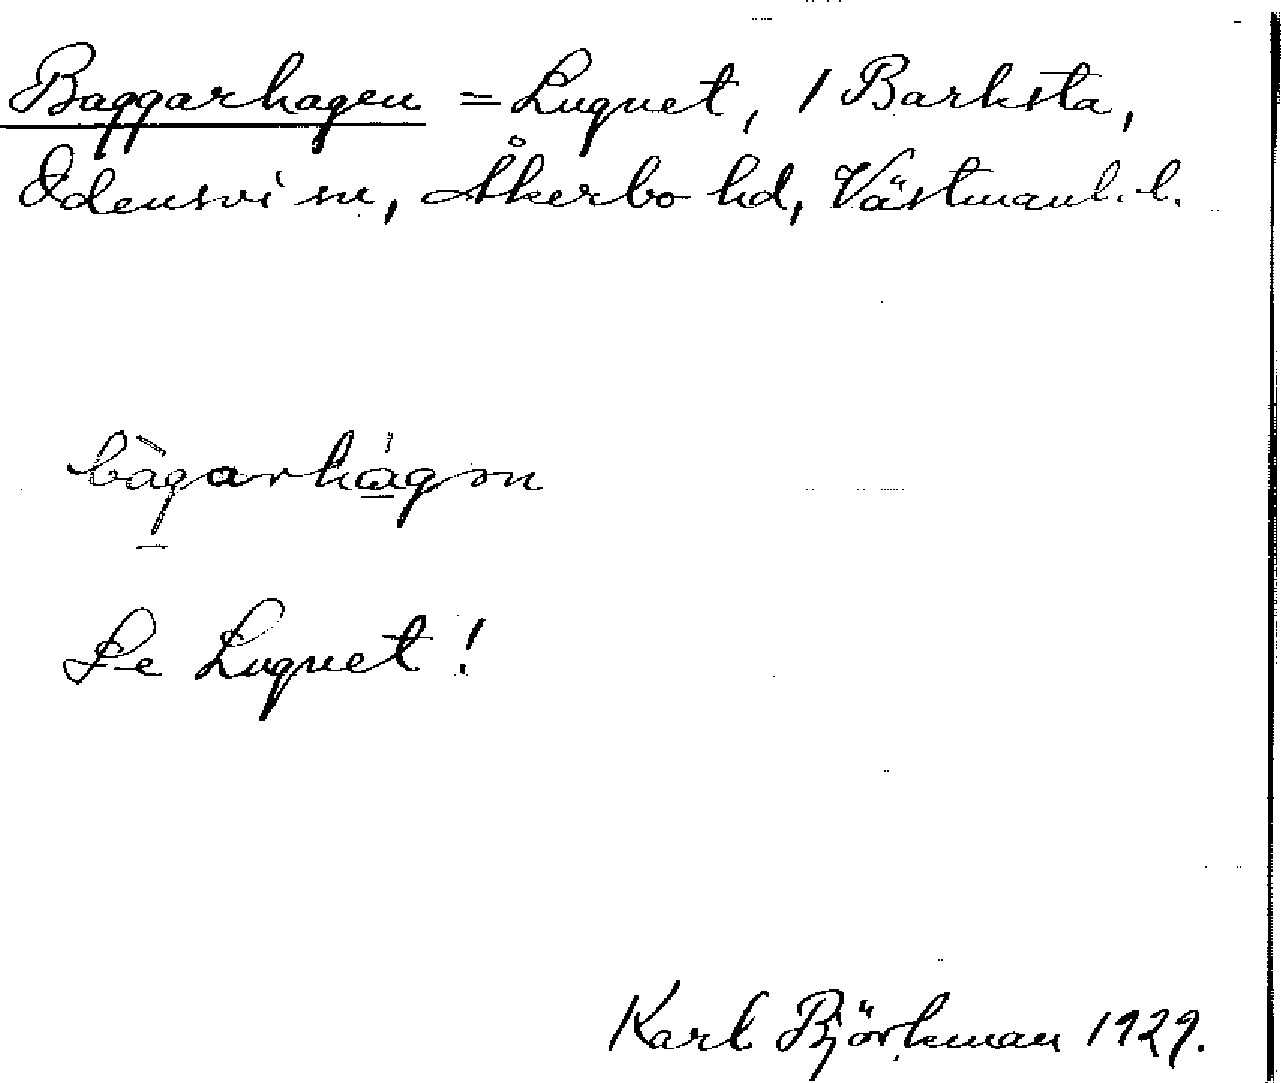 Baggarhagen = Lugnet, 1 Barksta,
Odensvi sn, Åkerbo hd, Västmanl. l.
bàgarhágon
Se Lugnet!
Karl Björkman 1929.